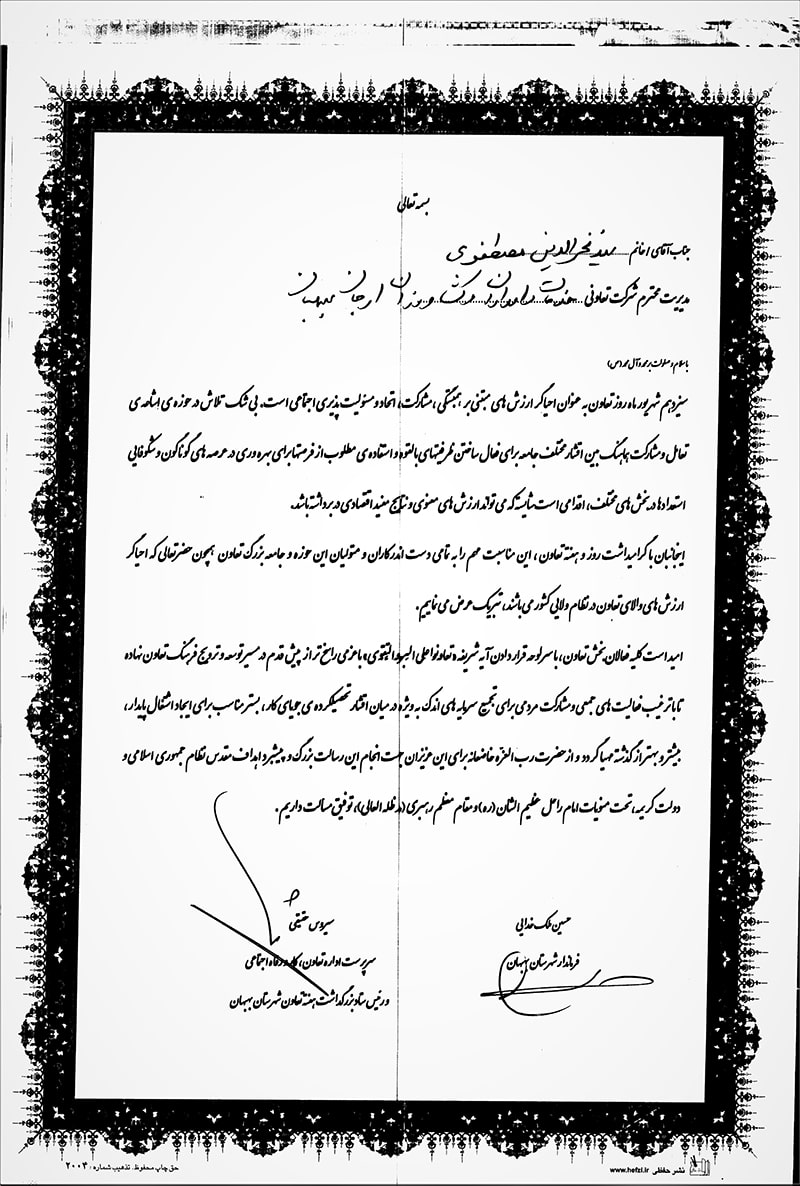 بسمه تعالی
جناب آقای / خانم سید فخرالدین مصطفوی
مدیریت محترم شرکت تعاونی خدمات کشاورزان ارجان بهبهان
با سلام و صلوات بر محمد و آل محمد (ص)
سیزدهم شهریور ماه روز تعاون به عنوان احیاگر ارزش های مبتنی بر همبستگی، مشارکت، اتحاد و مسئولیت پذیری اجتماعی است. بی شک تلاش در حوزه ی اشاعه ی
تعامل و مشارکت هماهنگ بین اقشار مختلف جامعه برای فعال ساختن ظرفیتهای بالقوه و استفاده ی مطلوب از فرصتها برای بهره وری در عرصه های گوناگون و شکوفایی
استعدادها در بخش های مختلف، اقدامی است شایسته که می تواند ارزش های معنوی و نتایج مفید اقتصادی در بر داشته باشد.
اینجانبان با گرامیداشت روز و هفته تعاون، این مناسبت مهم را به تمامی دست اندرکاران و متولیان این حوزه و جامعه بزرگ تعاون همچون حضرتعالی که احیاگر
ارزش های والای تعاون در نظام ولایی کشور می باشند، تبریک عرض می نماییم.
امید است کلیه فعالان بخش تعاون، با سرلوحه قرار دادن آیه شریفه «تعاونوا علی البر و التقوی» با عزمی راسخ تر از پیش قدم در مسیر توسعه و ترویج فرهنگ تعاون نهاده
تا با ترغیب فعالیت های جمعی و مشارکت مردمی برای تجمیع سرمایه های اندک به ویژه در میان اقشار تحصیلکرده ی جویای کار، بستر مناسب برای ایجاد اشتغال پایدار،
بیشتر و بهتر از گذشته مهیا گردد و از حضرت رب العزه خاضعانه برای این عزیزان جهت انجام این رسالت بزرگ و پیشبرد اهداف مقدس نظام جمهوری اسلامی و
دولت کریمه، تحت منویات امام راحل عظیم الشان (ره) و مقام معظم رهبری (مد ظله العالی)، توفیق مسالت داریم.
حسین ملک خدایی
فرماندار شهرستان بهبهان
سیروس حقیقی
سرپرست اداره تعاون، کار و رفاه اجتماعی
و رئیس ستاد بزرگداشت هفته تعاون شهرستان بهبهان
نشر حفظی www.hefzi.ir
حق چاپ محفوظ. تذهیب شماره: ۲۰۰۳